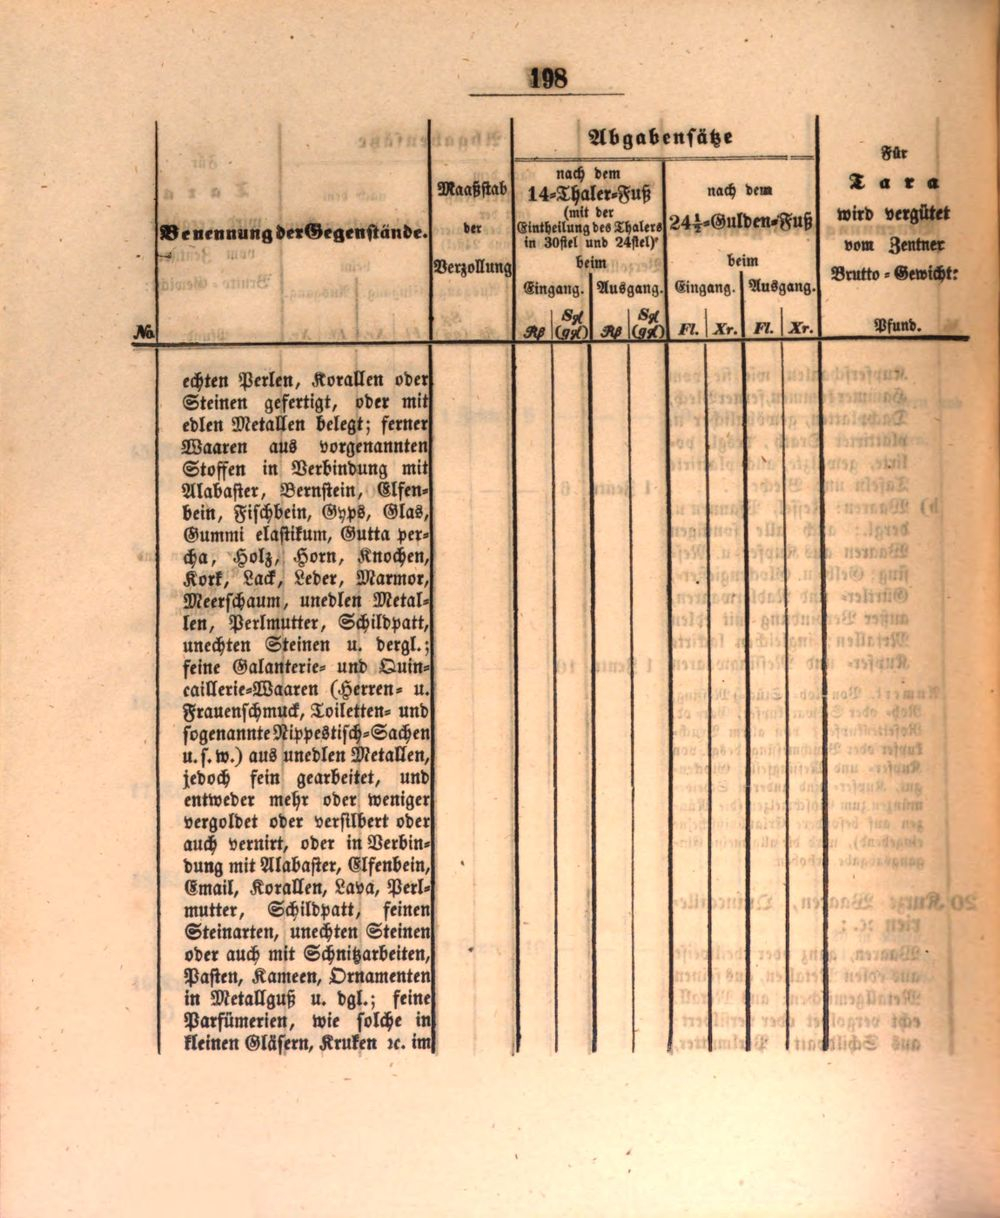 198
No.
Benennung der Gegenstände.
Maaßstab
der
Verzollung
Abgabensätze
nach dem
14-Thaler-Fuß
(mit der
Eintheilung des Thalers
in 30stel und 24stel)
beim
Eingang.
Ausgang.
Sgl
(ggl)
Sgl
(ggl)
nach dem
24½-Gulden-Fuß
beim
Eingang.
Ausgang.
Fl.
Xr.
Fl.
Xr.
Für
Tara
wird vergütet
vom Zentner
Brutto-Gewicht:
Pfund.
echten Perlen, Korallen oder
Steinen gefertigt, oder mit
edlen Metallen belegt; ferner
Waaren aus vorgenannten
Stoffen in Verbindung mit
Alabaster, Bernstein, Elfen-
bein, Fischbein, Gyps, Glas,
Gummi elastikum, Gutta per-
cha, Holz, Horn, Knochen,
Kork, Lack, Leder, Marmor,
Meerschaum, unedlen Metal-
len, Perlmutter, Schildpatt,
unechten Steinen u. dergl.;
feine Galanterie- und Quin-
caillerie-Waaren (Herren- u.
Frauenschmuck, Toiletten- und
sogenannte Nippestisch-Sachen
u. s. w.) aus unedlen Metallen,
jedoch fein gearbeitet, und
entweder mehr oder weniger
vergoldet oder versilbert oder
auch vernirt, oder in Verbin-
dung mit Alabaster, Elfenbein,
Email, Korallen, Lava, Perl-
mutter, Schildpatt, feinen
Steinarten, unechten Steinen
oder auch mit Schnitzarbeiten,
Pasten, Kameen, Ornamenten
in Metallguß u. dgl.; feine
Parfümerien, wie solche in
kleinen Gläsern, Kruken ꝛc. im